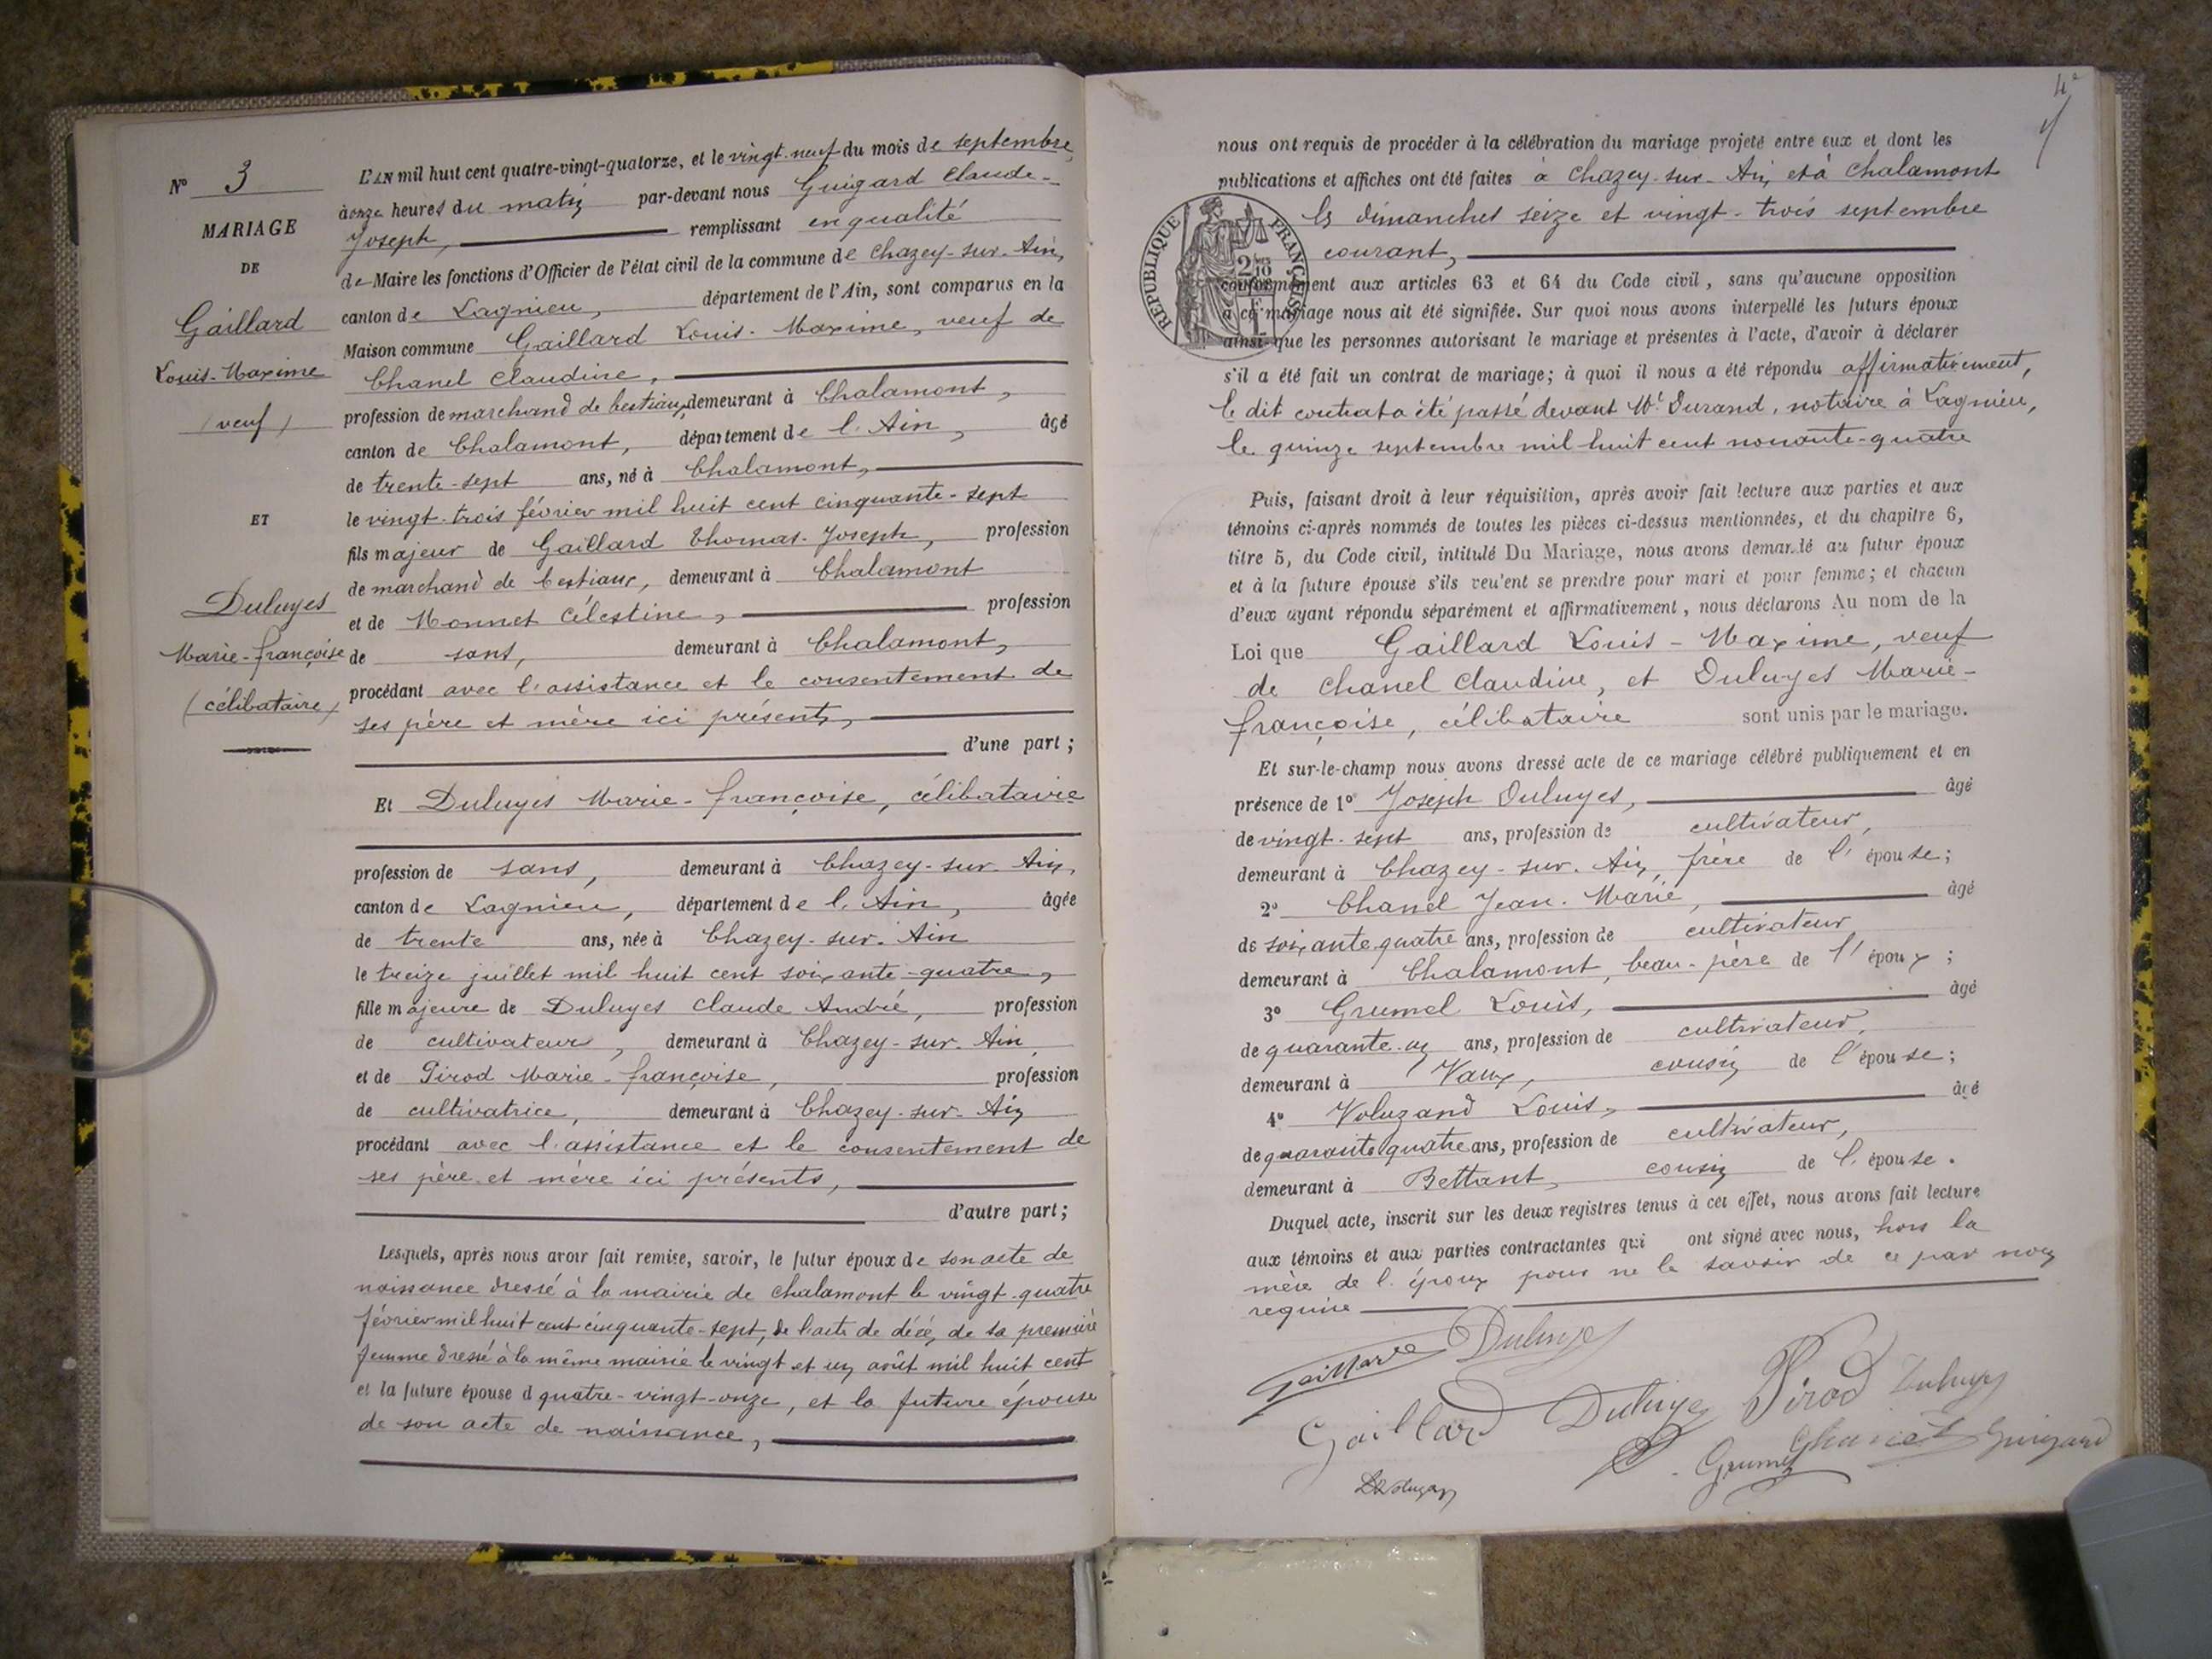 N° 3
MARIAGE
DE
Gaillard
Louis-Maxime
(veuf)
ET
Duluyes
Marie-françoise
(célibataire)
L'AN mil huit cent quatre-vingt-quatorze, et le vingt-neuf du mois de septembre,
à onze heures du matin par-devant nous Guigard Claude-
Joseph, remplissant en qualité
de Maire les fonctions d'Officier de l'état civil de la commune de Chazey-sur-Ain,
canton de Lagnieu, département de l'Ain, sont comparus en la
Maison commune Gaillard Louis-Maxime, veuf de
Chanel Claudine,
profession de marchand de bestiaux, demeurant à Chalamont,
canton de Chalamont, département de l'Ain, âgé
de trente-sept ans, né à Chalamont,
le vingt-trois février mil huit cent cinquante-sept
fils majeur de Gaillard Thomas-Joseph, profession
de marchand de bestiaux, demeurant à Chalamont
et de Monnet Célestine, profession
de sans, demeurant à Chalamont,
procédant avec l'assistance et le consentement de
ses père et mère ici présents,
d'une part;
Et Duluyes Marie-françoise, célibataire
profession de sans, demeurant à Chazey-sur-Ain,
canton de Lagnieu, département de l'Ain, âgée
de trente ans, née à Chazey-sur-Ain
le treize juillet mil huit cent soixante-quatre,
fille majeure de Duluyes Claude André, profession
de cultivateur, demeurant à Chazey-sur-Ain
et de Pirod Marie-françoise, profession
de cultivatrice, demeurant à Chazey-sur-Ain
procédant avec l'assistance et le consentement de
ses père et mère ici présents,
d'autre part;
Lesquels, après nous avoir fait remise, savoir, le futur époux de son acte de
naissance dressé à la mairie de Chalamont le vingt-quatre
février mil huit cent cinquante-sept, de l'acte de décé, de sa première
femme dressé à la même mairie le vingt et un août mil huit cent
et la future épouse d quatre-vingt-onze, et la future épouse
de son acte de naissance,
4e
nous ont requis de procéder à la célébration du mariage projeté entre eux et dont les
publications et affiches ont été faites à Chazey-sur-Ain, et à Chalamont
les dimanches seize et vingt-trois septembre
courant,
RÉPUBLIQUE FRANÇAISE
conformément aux articles 63 et 64 du Code civil, sans qu'aucune opposition
à ce mariage nous ait été signifiée. Sur quoi nous avons interpellé les futurs époux
ainsi que les personnes autorisant le mariage et présentes à l'acte, d'avoir à déclarer
s'il a été fait un contrat de mariage; à quoi il nous a été répondu affirmativement,
le dit contrat a été passé devant Me Durand, notaire à Lagnieu,
le quinze septembre mil huit cent nonante-quatre
Puis, faisant droit à leur réquisition, après avoir fait lecture aux parties et aux
témoins ci-après nommés de toutes les pièces ci-dessus mentionnées, et du chapitre 6,
titre 5, du Code civil, intitulé Du Mariage, nous avons demandé au futur époux
et à la future épouse s'ils veulent se prendre pour mari et pour femme; et chacun
d'eux ayant répondu séparément et affirmativement, nous déclarons Au nom de la
Loi que Gaillard Louis-Maxime, veuf
de Chanel Claudine, et Duluyes Marie-
françoise, célibataire sont unis par le mariage.
Et sur-le-champ nous avons dressé acte de ce mariage célébré publiquement et en
présence de 1° Joseph Duluyes, âgé
de vingt-sept ans, profession de cultivateur,
demeurant à Chazey-sur-Ain, frère de l'épouse;
2° Chanel Jean-Marie, âgé
de soixante quatre ans, profession de cultivateur
demeurant à Chalamont, beau-père de l'époux;
3° Grumel Louis, âgé
de quarante-un ans, profession de cultivateur,
demeurant à Vaux, cousin de l'épouse;
4° Voluzand Louis, âgé
de quarante quatre ans, profession de cultivateur,
demeurant à Bettant, cousin de l'épouse.
Duquel acte, inscrit sur les deux registres tenus à cet effet, nous avons fait lecture
aux témoins et aux parties contractantes qui ont signé avec nous, hors la
mère de l'époux pour ne le savoir de ce par nous
requise
Gaillard Duluyes
Gaillard Duluyes Pirod Duluyes
Grumel Chanel Guigard